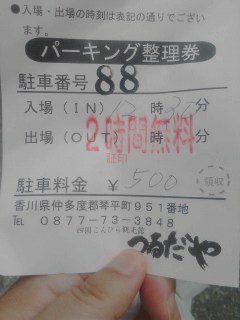 ●入場・出場の時刻は表記の通りでござい
ます。
パーキング整理券
駐車番号 88
入場（IN） 時 分
出場（OUT） 時 分
2時間無料
駐車料金 ￥ 500 領収
香川県仲多度郡琴平町951番地
TEL 0877-73-3848
四国こんぴら観光館
つるだや